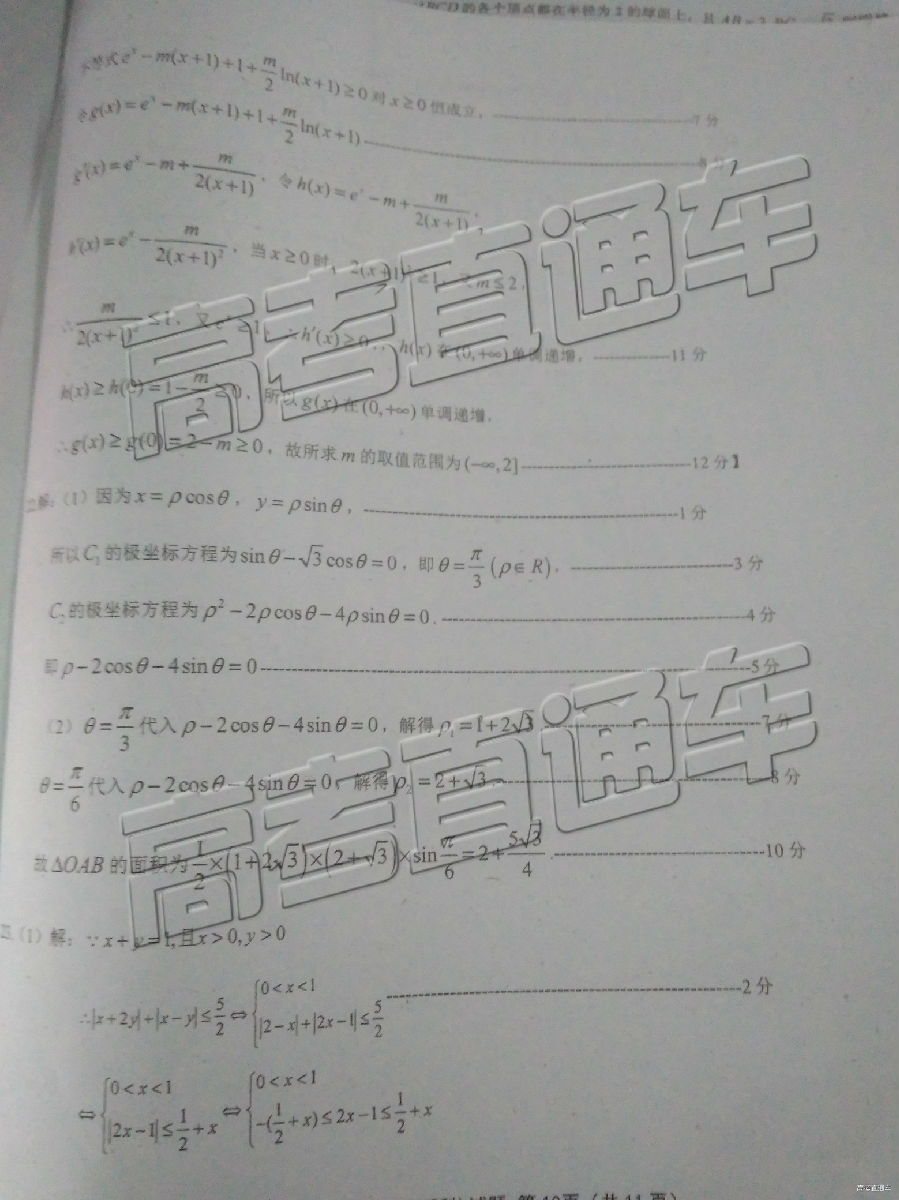 BCD的各个顶点都在半径为2的球面上，且AB=
不等式e^x−m(x+1)+1+\frac{m}{2}ln(x+1)≥0对x≥0恒成立，----------7分
令g(x)=e^x−m(x+1)+1+\frac{m}{2}ln(x+1)----------8分
g'(x)=e^x−m+\frac{m}{2(x+1)}，令h(x)=e^x−m+\frac{m}{2(x+1)}，
h'(x)=e^x−\frac{m}{2(x+1)^2}，当x≥0时，2(x+1)^2≥1，又m≤2，
∴\frac{m}{2(x+1)^2}≤1，又e^x≥1，∴h'(x)≥0，∴h(x)在(0,+∞)单调递增，----------11分
h(x)≥h(0)=1−\frac{m}{2}≥0，所以g(x)在(0,+∞)单调递增，
∴g(x)≥g(0)=2−m≥0，故所求m的取值范围为(−∞,2]----------12分
解：（1）因为x=ρcosθ，y=ρsinθ，----------1分
所以C₁的极坐标方程为sinθ−√3cosθ=0，即θ=\frac{π}{3}(ρ∈R)，----------3分
C₂的极坐标方程为ρ²−2ρcosθ−4ρsinθ=0．----------4分
即ρ−2cosθ−4sinθ=0----------5分
（2）θ=\frac{π}{3}代入ρ−2cosθ−4sinθ=0，解得ρ₁=1+2√3．----------7分
θ=\frac{π}{6}代入ρ−2cosθ−4sinθ=0，解得ρ₂=2+√3．----------8分
故ΔOAB的面积为\frac{1}{2}×(1+2√3)×(2+√3)×sin\frac{π}{6}=2+\frac{5√3}{4}．----------10分
（1）解：∵x+y=1,且x>0,y>0
∴|x+2y|+|x−y|≤\frac{5}{2}⇔{0<x<1 |2−x|+|2x−1|≤\frac{5}{2}----------2分
⇔{0<x<1 |2x−1|≤\frac{1}{2}+x⇔{0<x<1 −(\frac{1}{2}+x)≤2x−1≤\frac{1}{2}+x
试题 第10页（共11页）
高考直通车
高考直通车
高考直通车